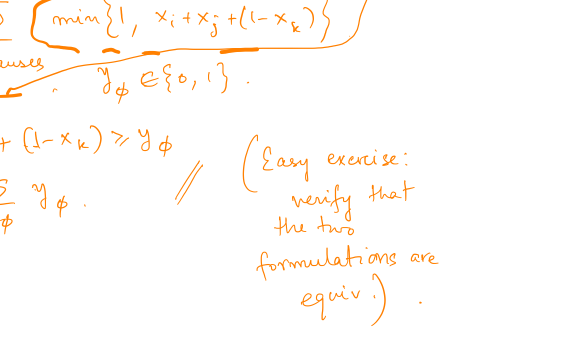 min{1, x_i + x_j + (1-x_k)}
auses
. y_ϕ ∈ {0, 1}.
+ (1-x_k) ≥ y_ϕ
(Easy exercise:
Σ_ϕ y_ϕ.
verify that
the two
formulations are
equiv.).